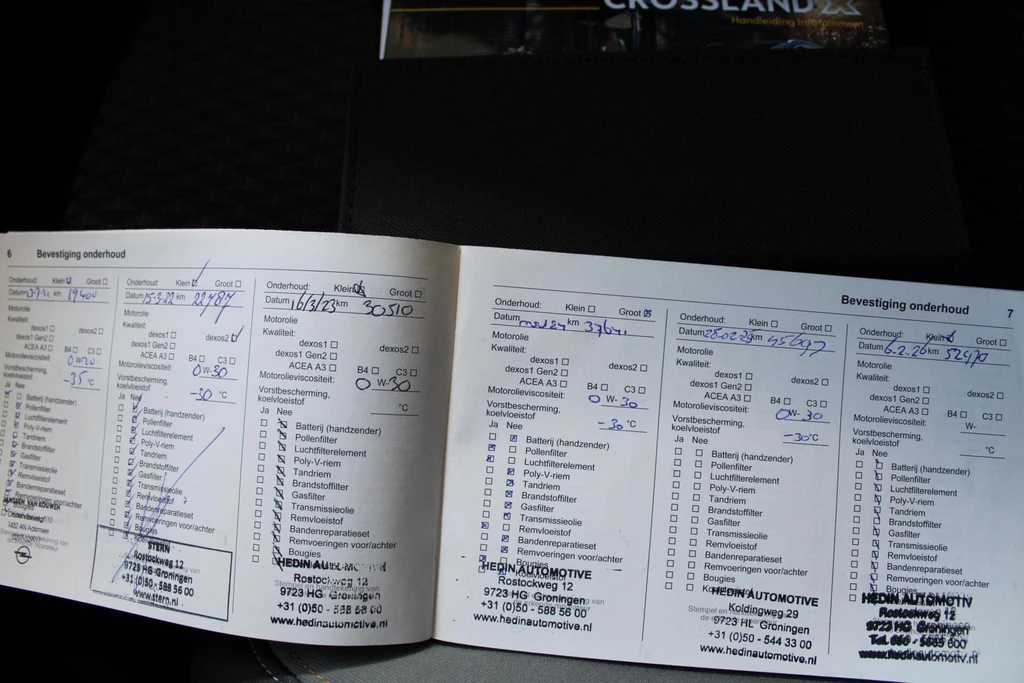 CROSSLAND X
Handleiding Infotainment
6 Bevestiging onderhoud
Onderhoud: Klein ☑ Groot ☐
Datum km 19400
Motorolie
Kwaliteit:
dexos1 ☐ dexos2 ☐
dexos1 Gen2 ☐
ACEA A3 ☐ B4 ☐ C3 ☐
Motorolieviscositeit:
0 W-20
Vorstbescherming,
koelvloeistof -35 °C
Ja Nee
Batterij (handzender)
Pollenfilter
Luchtfilterelement
Poly-V-riem
Tandriem
Brandstoffilter
Gasfilter
Transmissieolie
Remvloeistof
Bandenreparatieset
Remvoeringen voor/achter
Bougies
1432 AN Aalsmeer
Onderhoud: Klein ☑ Groot ☐
Datum 15-3-22 km 22787
Motorolie
Kwaliteit:
dexos1 ☐ dexos2 ☑
dexos1 Gen2 ☐
ACEA A3 ☐ B4 ☐ C3 ☐
Motorolieviscositeit:
0 W-30
Vorstbescherming,
koelvloeistof -30 °C
Ja Nee
Batterij (handzender)
Pollenfilter
Luchtfilterelement
Poly-V-riem
Tandriem
Brandstoffilter
Gasfilter
Transmissieolie
Remvloeistof
Bandenreparatieset
Remvoeringen voor/achter
Bougies
STERN
Rostockweg 12
9723 HG Groningen
+31 (0)50 - 588 56 00
www.stern.nl
Onderhoud: Klein ☒ Groot ☐
Datum 16/3/23 km 30510
Motorolie
Kwaliteit:
dexos1 ☐ dexos2 ☐
dexos1 Gen2 ☐
ACEA A3 ☐ B4 ☐ C3 ☐
Motorolieviscositeit:
0 W-30
Vorstbescherming,
koelvloeistof °C
Ja Nee
Batterij (handzender)
Pollenfilter
Luchtfilterelement
Poly-V-riem
Tandriem
Brandstoffilter
Gasfilter
Transmissieolie
Remvloeistof
Bandenreparatieset
Remvoeringen voor/achter
Bougies
HEDIN AUTOMOTIVE
Stempel en handtekening van
Rostockweg 12
9723 HG Groningen
+31 (0)50 - 588 56 00
www.hedinautomotive.nl
Bevestiging onderhoud 7
Onderhoud: Klein ☐ Groot ☒
Datum km
Motorolie
Kwaliteit:
dexos1 ☐ dexos2 ☐
dexos1 Gen2 ☐
ACEA A3 ☐ B4 ☐ C3 ☐
Motorolieviscositeit: 0 W-30
Vorstbescherming,
koelvloeistof -30 °C
Ja Nee
Batterij (handzender)
Pollenfilter
Luchtfilterelement
Poly-V-riem
Tandriem
Brandstoffilter
Gasfilter
Transmissieolie
Remvloeistof
Bandenreparatieset
Remvoeringen voor/achter
Bougies
HEDIN AUTOMOTIVE
Rostockweg 12
9723 HG Groningen
+31 (0)50 - 588 56 00
www.hedinautomotive.nl
Onderhoud: Klein ☐ Groot ☐
Datum 28.02.25 km 45697
Motorolie
Kwaliteit:
dexos1 ☐ dexos2 ☐
dexos1 Gen2 ☐
ACEA A3 ☐ B4 ☐ C3 ☐
Motorolieviscositeit: 0 W-30
Vorstbescherming,
koelvloeistof -30 °C
Ja Nee
Batterij (handzender)
Pollenfilter
Luchtfilterelement
Poly-V-riem
Tandriem
Brandstoffilter
Gasfilter
Transmissieolie
Remvloeistof
Bandenreparatieset
Remvoeringen voor/achter
Bougies
HEDIN AUTOMOTIVE
Koldingweg 29
9723 HL Groningen
+31 (0)50 - 544 33 00
www.hedinautomotive.nl
Onderhoud: Klein ☑ Groot ☐
Datum 6.2.26 km 52470
Motorolie
Kwaliteit:
dexos1 ☐ dexos2 ☐
dexos1 Gen2 ☐
ACEA A3 ☐ B4 ☐ C3 ☐
Motorolieviscositeit: W-
Vorstbescherming,
koelvloeistof °C
Ja Nee
Batterij (handzender)
Pollenfilter
Luchtfilterelement
Poly-V-riem
Tandriem
Brandstoffilter
Gasfilter
Transmissieolie
Remvloeistof
Bandenreparatieset
Remvoeringen voor/achter
Bougies
HEDIN AUTOMOTIV
Rostockweg 12
9723 HG Groningen